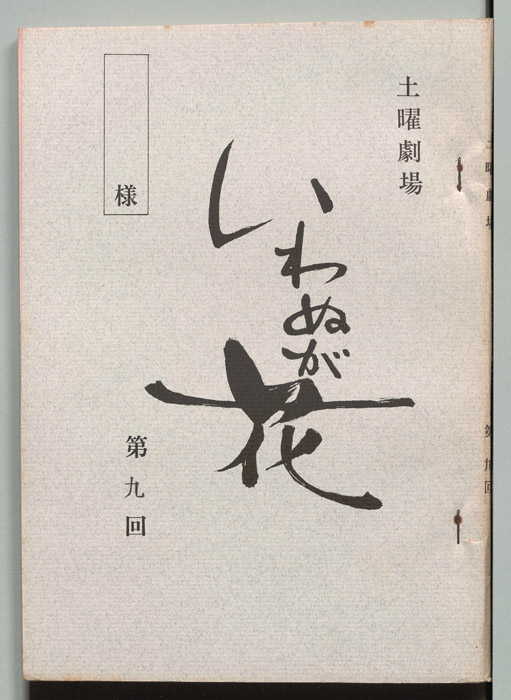 土曜劇場
いわぬが花
第九回
様